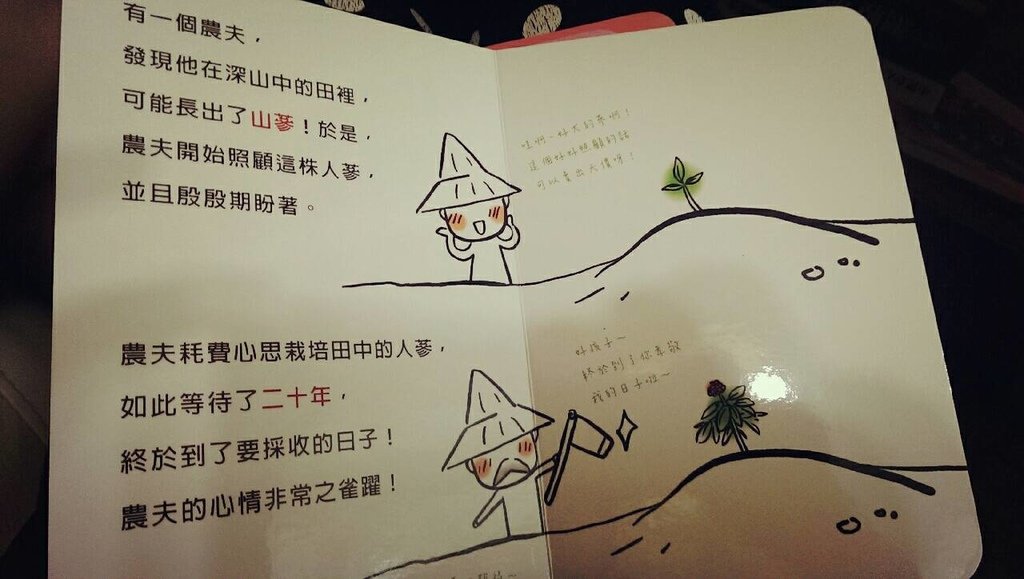 有一個農夫，
發現他在深山中的田裡，
可能長出了山蔘！於是，
農夫開始照顧這株人蔘，
並且殷殷期盼著。
哇啊~好大的蔘啊！
這個好好照顧的話
可以賣出天價呀！
農夫耗費心思栽培田中的人蔘，
如此等待了二十年，
終於到了要採收的日子！
農夫的心情非常之雀躍！
好孩子~
終於到了你孝敬
我的日子啦~